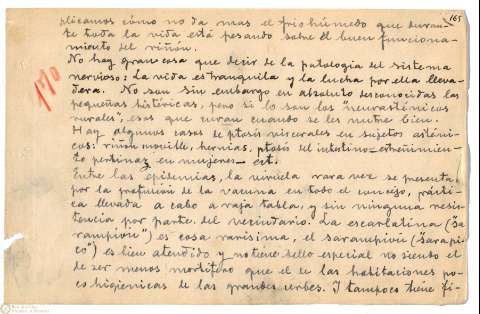 165
plicamos cómo no da mas el frio húmedo que duran-
te toda la vida está pesando sobre el buen funciona-
miento del riñón.
170
No hay gran cosa que decir de la patologia del sistema
nervioso: La vida es tranquila y la lucha por ella lleva-
dera. No son sin embargo en absoluto desconocidas las
pequeñas histéricas, pero si lo son los "neurasténicos
rurales", esos que curan cuando se les nutre bien.
Hay algunos casos de ptosis viscerales en sujetos asténi-
cos: riñón movible, hernias, ptosis del intestino—estreñimien-
to pertinaz en mujeres— ect.
Entre las epidemias, la viruela rara vez se presenta,
por la profusión de la vacuna en todo el concejo, prácti-
ca llevada a cabo a raja tabla, y sin ninguna resis-
tencia por parte del vecindario. La escarlatina ("sa-
rampión") es cosa rarísima, el sarampión ("sarapi-
co") es bien atendido y no tiene sello especial no siendo el
de ser menos mortífero que el de las habitaciones po-
co higiénicas de las grandes urbes. Y tampoco tiene fi-